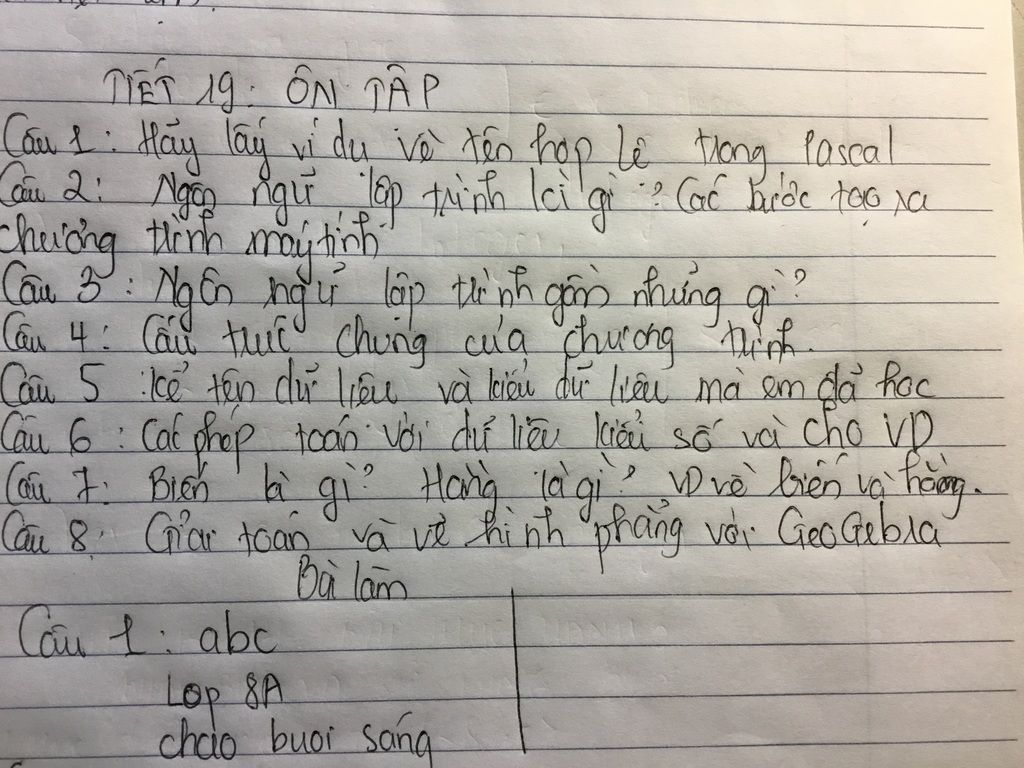 TIẾT 19: ÔN TẬP
Câu 1: Hãy lấy ví dụ về tên hợp lệ trong Pascal
Câu 2: Ngôn ngữ lập trình là gì? Các bước tạo ra
chương trình máy tính
Câu 3: Ngôn ngữ lập trình gồm những gì?
Câu 4: Cấu trúc chung của chương trình.
Câu 5: kể tên dữ liệu và kiểu dữ liệu mà em đã học
Câu 6: Các phép toán với dữ liệu kiểu số và cho VD
Câu 7: Biến là gì? Hằng là gì? VD về biến và hằng.
Câu 8: Giải toán và vẽ hình phẳng với GeoGebra
Bài làm
Câu 1: abc
Lop 8A
chao buoi sáng